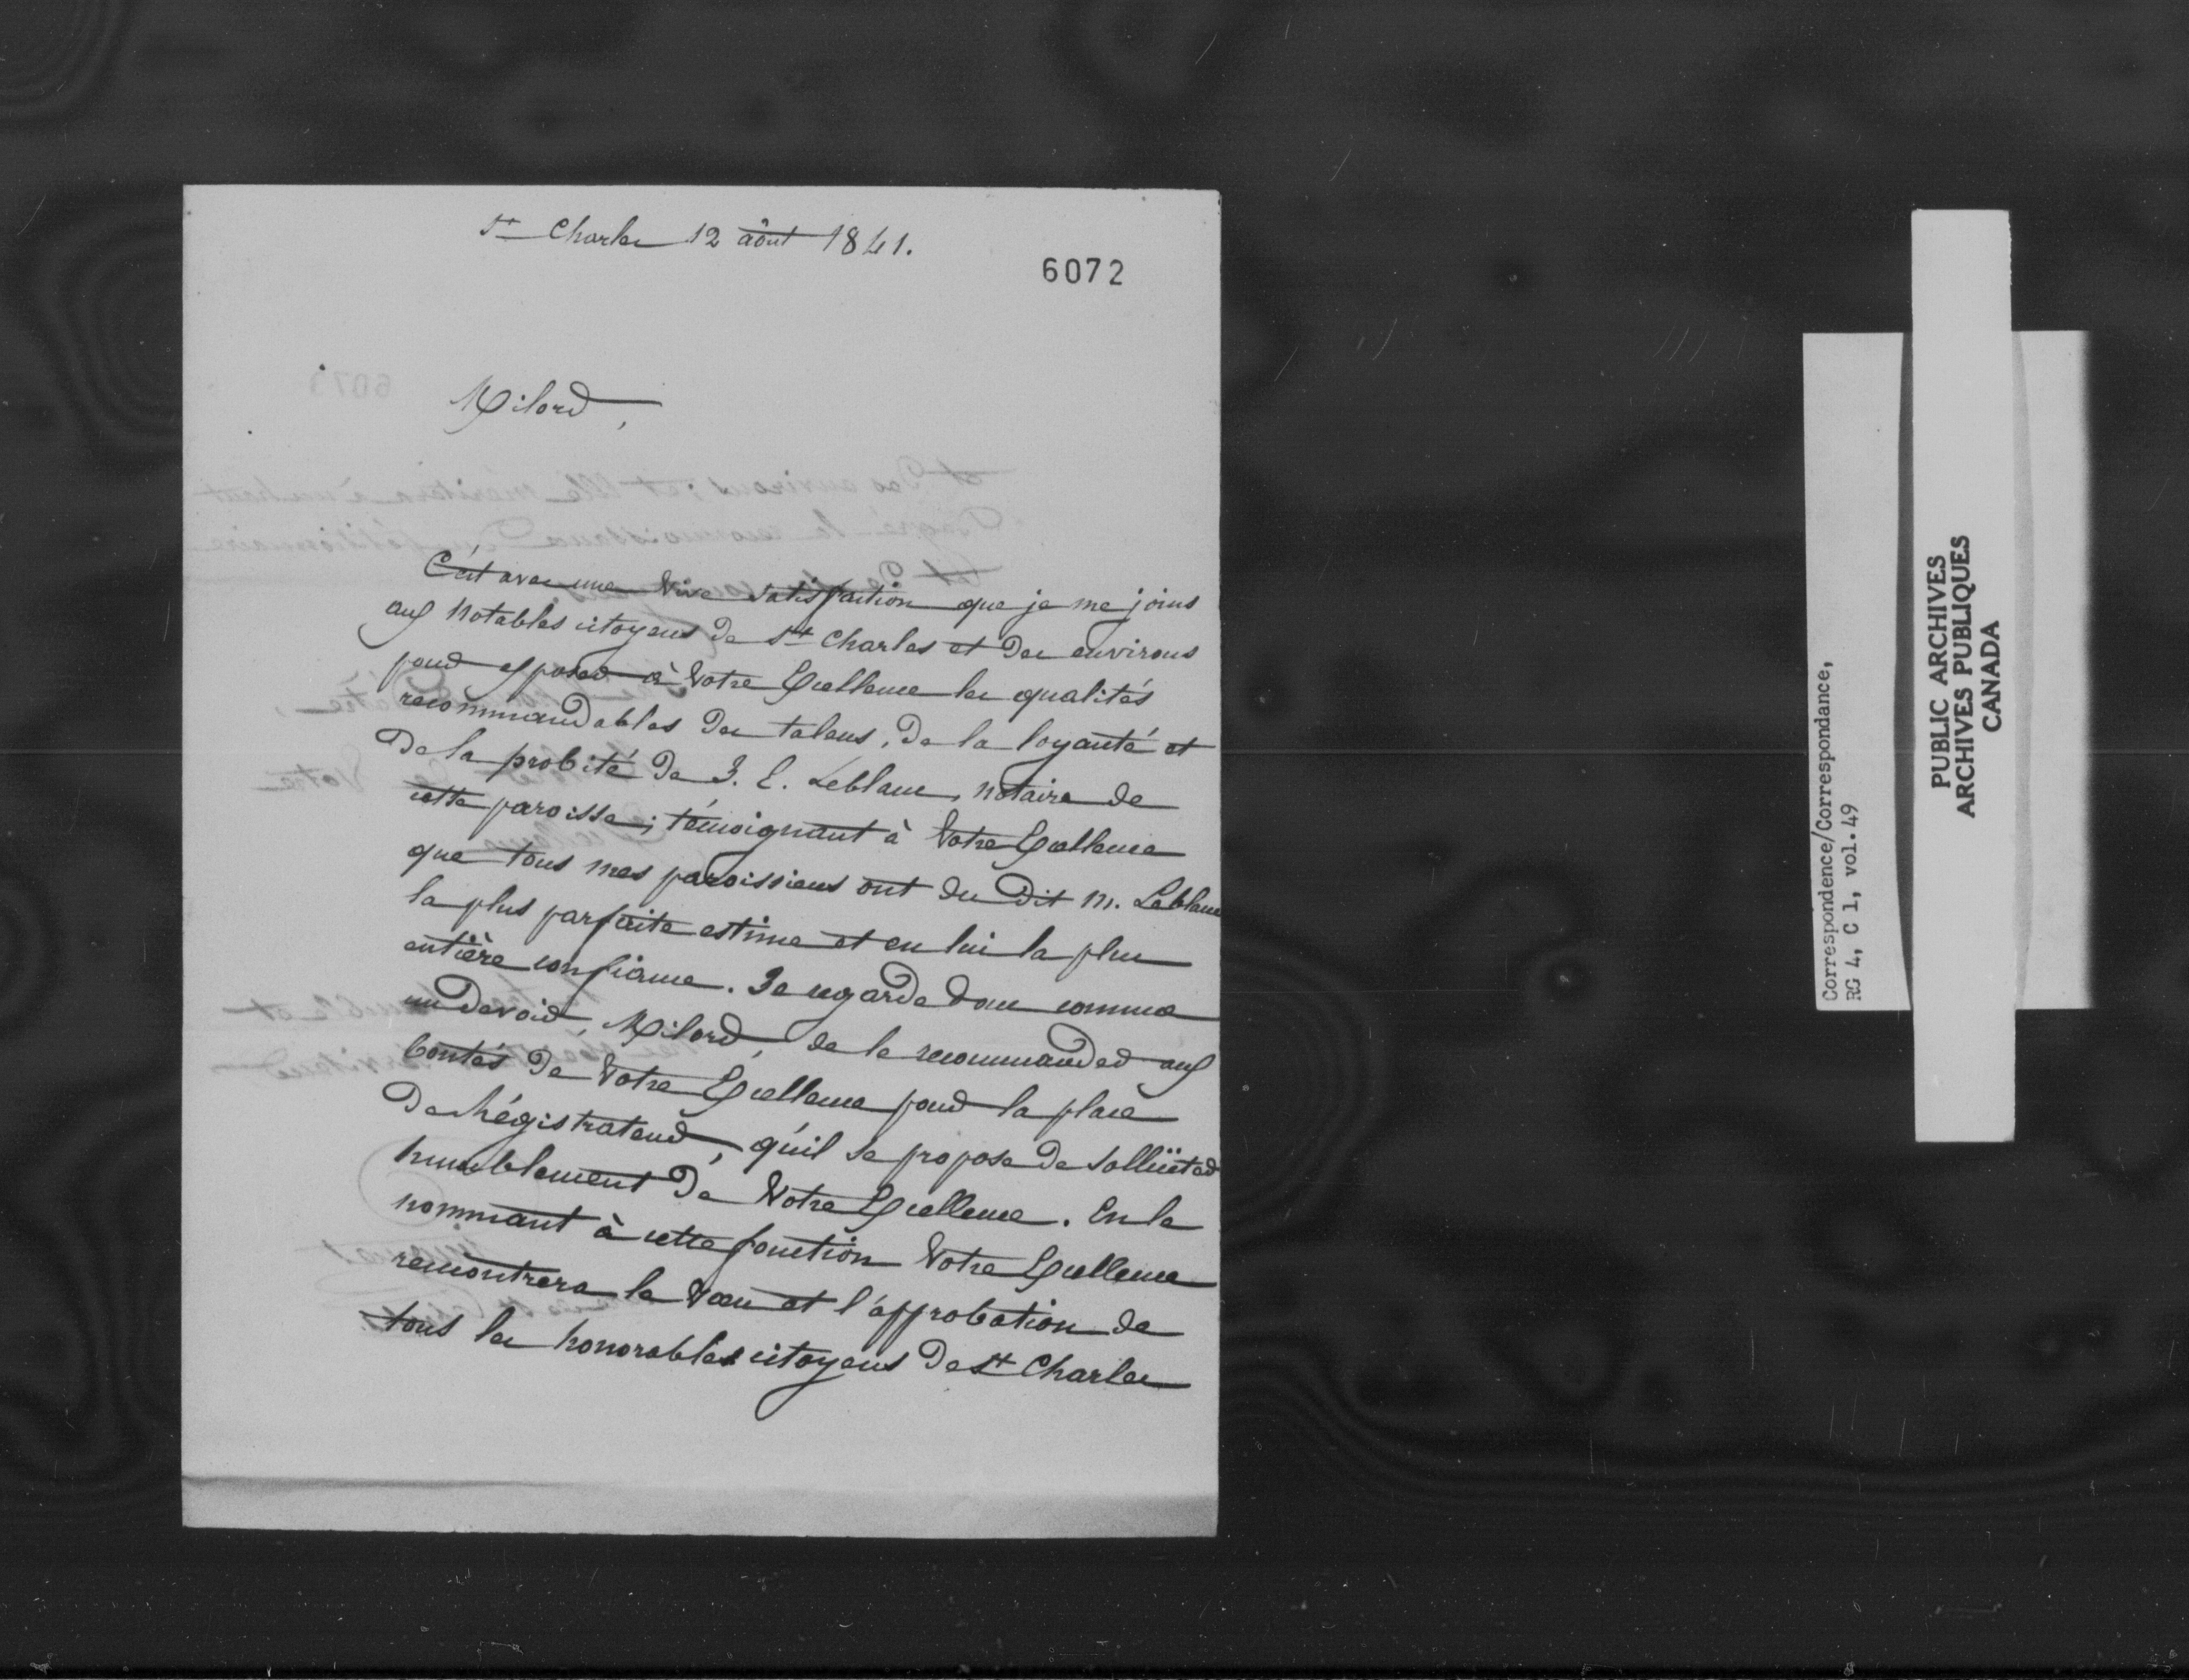 St Charles 12 âout 1841.
6072
Milord,
C'est avec une vive satisfaction que je me joins
aux Notables citoyens de St Charles et des environs
pour exposer à Votre Excellence les qualités
recommandables des talens, de la loyauté et
de la probité de J. E. Leblanc, notaire de
cette paroisse; témoignant à Votre Excellence
que tous mes paroissiens ont du dit M. Leblanc
la plus parfaite estime et en lui la plus
entière confiance. Je regarde donc comme
un devoir, Milord, de le recommander aux
bontés de Votre Excellence pour la place
de Régistrateur, qu'il se propose de solliciter
humblement de Votre Excellence. En le
nommant à cette fonction Votre Excellence
rencontrera le voeu et l'approbation de
tous les honorables citoyens de St Charles
Correspondence/Correspondance,
RG 4, C 1, vol. 49
PUBLIC ARCHIVES
ARCHIVES PUBLIQUES
CANADA